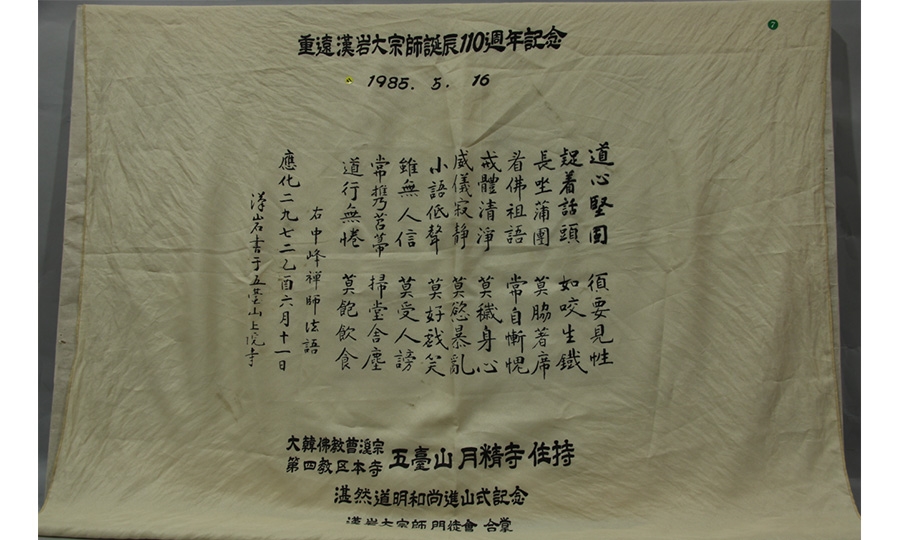 重遠漢岩大宗師誕辰110週年記念
1985. 5. 16
道心堅固 須要見性
疑着話頭 如咬生鐵
長坐蒲團 莫脇著席
看佛祖語 常自慚愧
戒體清淨 莫穢身心
威儀寂靜 莫慾暴亂
小語低聲 莫好戲笑
雖無人信 莫受人謗
常携苕箒 掃堂舍塵
道行無惓 莫飽飲食
右中峰禪師法語
應化二九七二乙酉六月十一日
漢岩書于五莹山上院寺
大韓佛教曹溪宗
第四教区本寺
五臺山 月精寺 住持
湛然道明和尚進山式記念
漢岩大宗師 門徒會 合掌
2